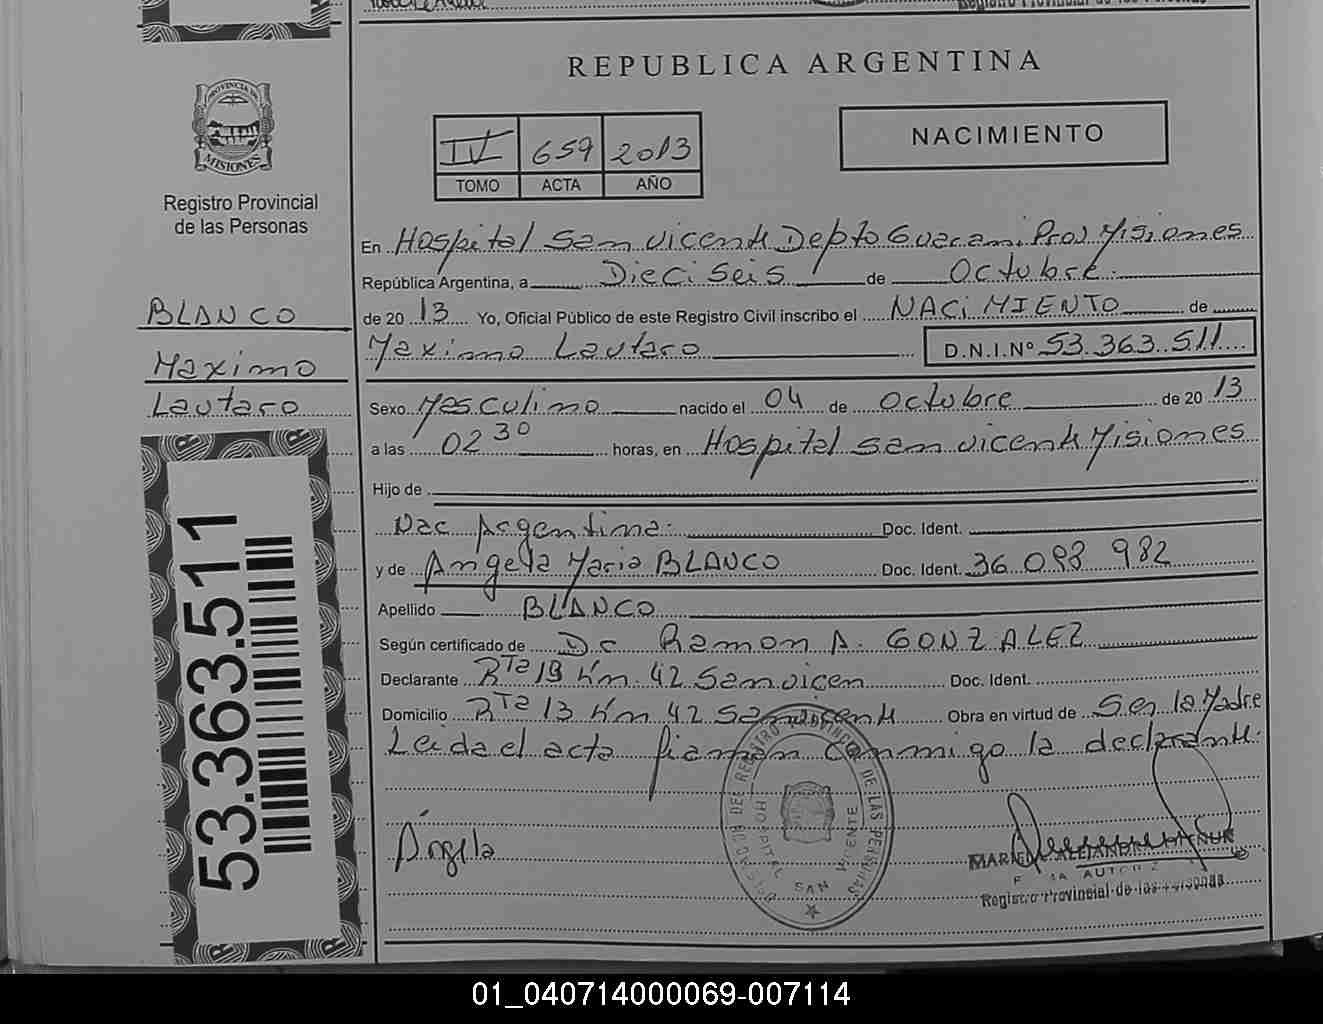 REPUBLICA ARGENTINA
PROVINCIA DE
MISIONES
Registro Provincial
de las Personas
IV 659 2013
TOMO ACTA AÑO
NACIMIENTO
En Hospital San Vicente Depto Guarani Prov Misiones
República Argentina, a Dieciseis de Octubre
de 2013 Yo, Oficial Público de este Registro Civil inscribo el NACIMIENTO de
Maximo Lautaro D.N.I.Nº 53.363.511
BLANCO
Maximo
Lautaro
Sexo Masculino nacido el 04 de Octubre de 2013
a las 02 30 horas, en Hospital San Vicente Misiones
Hijo de
Nac Argentina Doc. Ident.
y de Angela Maria BLANCO Doc. Ident. 36 098 982
Apellido BLANCO
Según certificado de Dr Ramon A. GONZALEZ
Declarante Rta 13 Km. 42 San Vicen Doc. Ident.
Domicilio Rta 13 Km 42 San Vicente Obra en virtud de Ser la Madre
Leida el acta firman conmigo la declarante.
53.363.511
Angela
REGISTRO PROVINCIAL DE LAS PERSONAS
HOSPITAL SAN VICENTE
Registro Provincial de las Personas
01_040714000069-007114